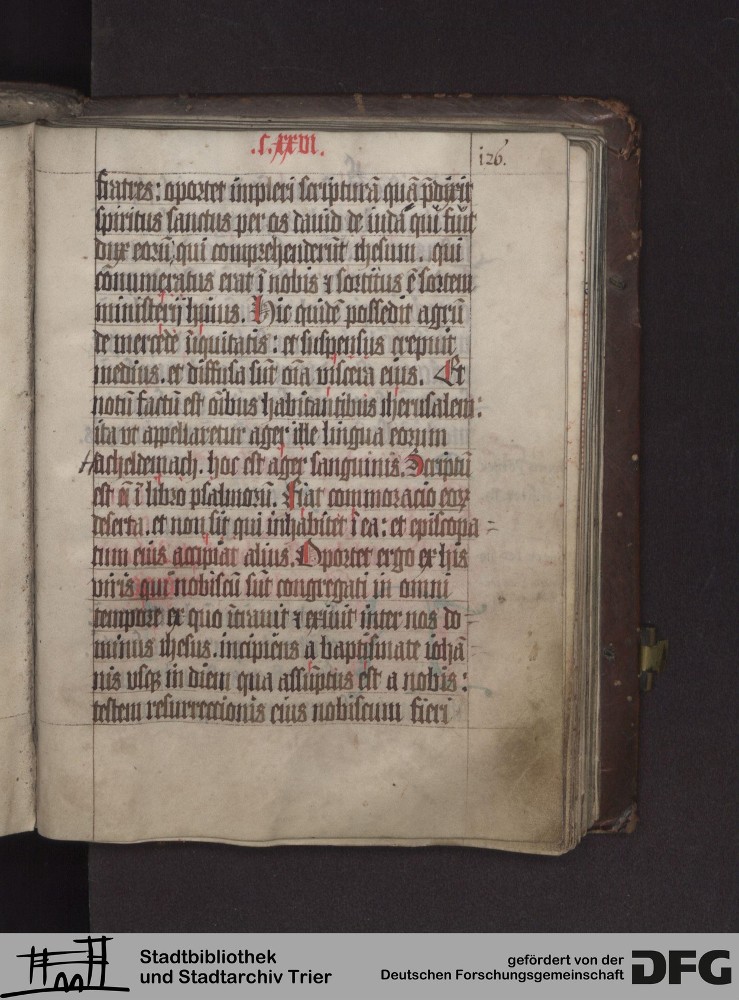 .C.XXVI.
126.
fratres: oportet impleri scripturā quā p̄dixit
spiritus sanctus per os dauid de iuda qui fuit
dux eorū, qui comprehenderūt ihesum. qui
cōnumeratus erat ī nobis ⁊ sortitus ē sortem
ministerij huius. Hic quidē possedit agrū
de mercede iniquitatis: et suspensus crepuit
medius. et diffusa sūt oīa viscera eius. Et
notū factū est oībus habitantibus iherusalem:
ita vt appellaretur ager ille lingua eorum
Acheldemach. hoc est ager sanguinis. Scriptū
est eī ī libro psalmorū. Fiat commoracio eoꝝ
deserta. et non sit qui inhabitet ī ea: et episcopa=
tum eius accipiat alius. Oportet ergo ex his
viris qui nobiscū sūt congregati in omni
tempore ex quo ītrauit ⁊ exiuit inter nos do=
minus ihesus. incipiens a baptismate iohā=
nis vsqꝫ in diem qua assūptus est a nobis:
testem resurrectionis eius nobiscum fieri
Stadtbibliothek
und Stadtarchiv Trier
gefördert von der
Deutschen Forschungsgemeinschaft
DFG